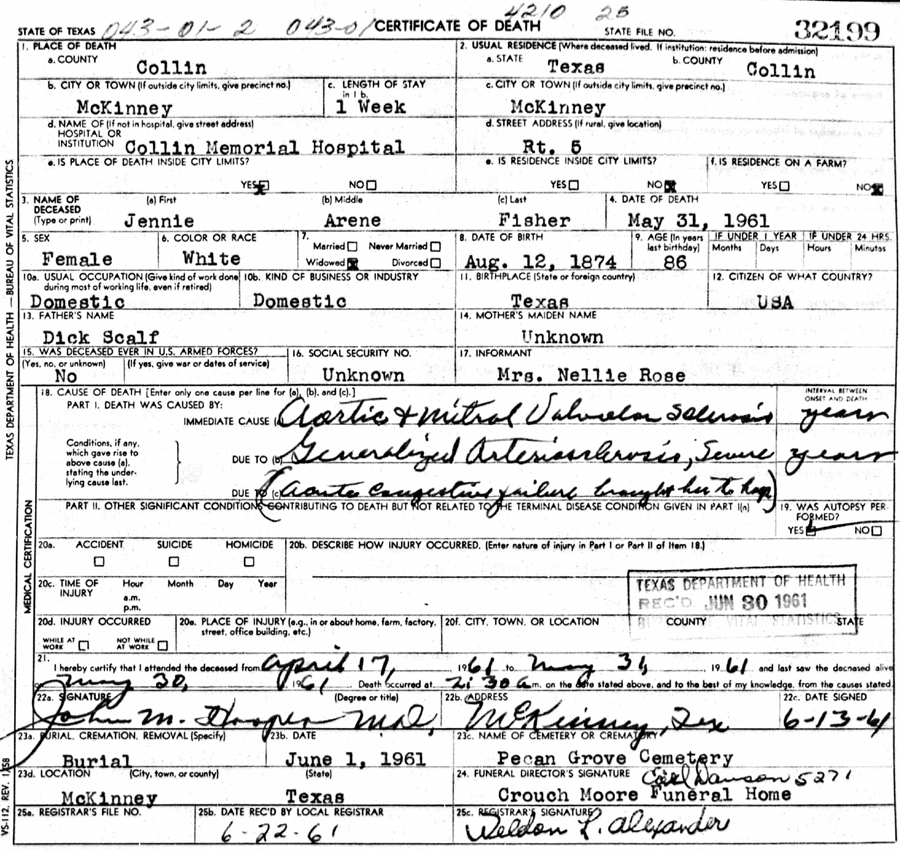 4210 25
STATE OF TEXAS 043-01-2 043-01 CERTIFICATE OF DEATH STATE FILE NO. 32199
1. PLACE OF DEATH
a. COUNTY
Collin
2. USUAL RESIDENCE (Where deceased lived. If institution: residence before admission)
a. STATE b. COUNTY
Texas Collin
b. CITY OR TOWN (If outside city limits, give precinct no.)
McKinney
c. LENGTH OF STAY
in 1 b.
1 Week
c. CITY OR TOWN (If outside city limits, give precinct no.)
McKinney
d. NAME OF (If not in hospital, give street address)
HOSPITAL OR
INSTITUTION Collin Memorial Hospital
d. STREET ADDRESS (If rural, give location)
Rt. 5
e. IS PLACE OF DEATH INSIDE CITY LIMITS?
YES NO
e. IS RESIDENCE INSIDE CITY LIMITS?
YES NO
f. IS RESIDENCE ON A FARM?
YES NO
3. NAME OF
DECEASED
(Type or print)
(a) First (b) Middle (c) Last
Jennie Arene Fisher
4. DATE OF DEATH
May 31, 1961
5. SEX
Female
6. COLOR OR RACE
White
7.
Married Never Married
Widowed Divorced
8. DATE OF BIRTH
Aug. 12, 1874
9. AGE (In years
last birthday)
86
IF UNDER 1 YEAR
Months Days
IF UNDER 24 HRS.
Hours Minutes
10a. USUAL OCCUPATION (Give kind of work done
during most of working life, even if retired)
Domestic
10b. KIND OF BUSINESS OR INDUSTRY
Domestic
11. BIRTHPLACE (State or foreign country)
Texas
12. CITIZEN OF WHAT COUNTRY?
USA
13. FATHER'S NAME
Dick Scalf
14. MOTHER'S MAIDEN NAME
Unknown
15. WAS DECEASED EVER IN U.S. ARMED FORCES?
(Yes, no, or unknown) (If yes, give war or dates of service)
No
16. SOCIAL SECURITY NO.
Unknown
17. INFORMANT
Mrs. Nellie Rose
18. CAUSE OF DEATH [Enter only one cause per line for (a), (b), and (c).]
PART I. DEATH WAS CAUSED BY:
INTERVAL BETWEEN
ONSET AND DEATH
IMMEDIATE CAUSE (a) Aortic & Mitral Valvular Sclerosis years
Conditions, if any,
which gave rise to
above cause (a),
stating the under-
lying cause last.
DUE TO (b) Generalized Arteriosclerosis, Severe years
DUE TO (c) (Acute congestive failure brought her to hosp)
PART II. OTHER SIGNIFICANT CONDITIONS CONTRIBUTING TO DEATH BUT NOT RELATED TO THE TERMINAL DISEASE CONDITION GIVEN IN PART I(a)
19. WAS AUTOPSY PER-
FORMED?
YES NO
MEDICAL CERTIFICATION
20a. ACCIDENT SUICIDE HOMICIDE
20b. DESCRIBE HOW INJURY OCCURRED. (Enter nature of injury in Part I or Part II of Item 18.)
20c. TIME OF
INJURY
Hour Month Day Year
a.m.
p.m.
TEXAS DEPARTMENT OF HEALTH
REC'D JUN 30 1961
VITAL STATISTICS
20d. INJURY OCCURRED
WHILE AT
WORK
NOT WHILE
AT WORK
20e. PLACE OF INJURY (e.g., in or about home, farm, factory,
street, office building, etc.)
20f. CITY, TOWN, OR LOCATION COUNTY STATE
21.
I hereby certify that I attended the deceased from April 17, 1961 to May 31, 1961 and last saw the deceased alive
on May 30, 1961 Death occurred at 2:30 a.m. on the date stated above, and to the best of my knowledge, from the causes stated.
22a. SIGNATURE (Degree or title)
John M. Hooper M.D.
22b. ADDRESS
McKinney, Tex
22c. DATE SIGNED
6-13-61
23a. BURIAL, CREMATION, REMOVAL (Specify)
Burial
23b. DATE
June 1, 1961
23c. NAME OF CEMETERY OR CREMATORY
Pecan Grove Cemetery
23d. LOCATION (City, town, or county) (State)
McKinney Texas
24. FUNERAL DIRECTOR'S SIGNATURE Carl Dawson 5271
Crouch Moore Funeral Home
25a. REGISTRAR'S FILE NO.
25b. DATE REC'D BY LOCAL REGISTRAR
6-22-61
25c. REGISTRAR'S SIGNATURE
Weldon L. Alexander
TEXAS DEPARTMENT OF HEALTH — BUREAU OF VITAL STATISTICS
VS-112. REV. 1/58